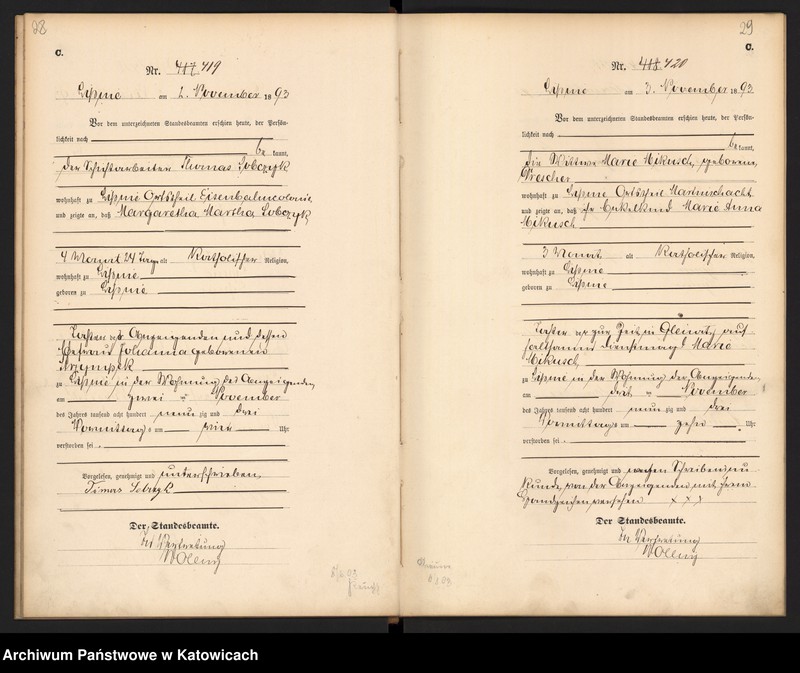 28
C.
Nr. 417 419
Lipine am 2. November 1893
Vor dem unterzeichneten Standesbeamten erschien heute, der Persön-
lichkeit nach
be kannt,
der Schichtarbeiter Thomas Sobczyk
wohnhaft zu Lipine Ortstheil Eisenbahncolonie
und zeigte an, daß Margaretha Martha Sobczyk
4 Monat 24 Tage alt Katholischer Religion,
wohnhaft zu Lipine
geboren zu Lipine
Tochter des Anzeigenden und dessen
Ehefrau Johanna geborenen
zu Lipine in der Wohnung des Anzeigenden
am zwei November
des Jahres tausend acht hundert neun zig und drei
Vormittags um vier Uhr
verstorben sei.
Vorgelesen, genehmigt und unterschrieben
Der Standesbeamte.
In Vertretung
29
C.
Nr. 418 420
Lipine am 3. November 1893
Vor dem unterzeichneten Standesbeamten erschien heute, der Persön-
lichkeit nach
be kannt,
die Wittwe Marie Mikusch, geborene
Drescher
wohnhaft zu Lipine Ortstheil Martinschacht
und zeigte an, daß ihr Enkelkind Marie Anna
Mikusch
3 Monat alt Katholischer Religion,
wohnhaft zu Lipine
geboren zu Lipine
Tochter der zur Zeit in Gleiwitz auf-
haltsamen Dienstmagd Marie
Mikusch
zu Lipine in der Wohnung der Anzeigenden
am drei November
des Jahres tausend acht hundert neun zig und drei
Vormittags um zehn Uhr
verstorben sei.
Vorgelesen, genehmigt und wegen Schreibensun-
kunde von der Anzeigenden mit ihrem
Handzeichen versehen x x x
Der Standesbeamte.
In Vertretung
Archiwum Państwowe w Katowicach